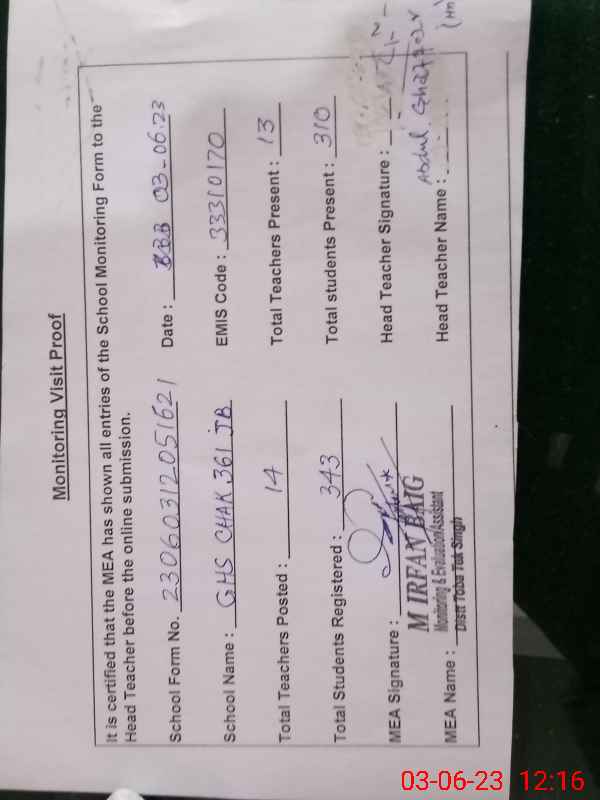 Monitoring Visit Proof
It is certified that the MEA has shown all entries of the School Monitoring Form to the
Head Teacher before the online submission.
School Form No. 23060312051621 Date : 03-06-23
School Name : GHS CHAK 361 JB EMIS Code : 33310170
Total Teachers Posted : 14 Total Teachers Present : 13
Total Students Registered : 343 Total students Present : 310
MEA Signature : Head Teacher Signature :
M IRFAN BAIG
Monitoring & Evaluation Assistant
Distt Toba Tek Singh
MEA Name : Head Teacher Name : Abdul Ghaffar
(HM)
03-06-23 12:16